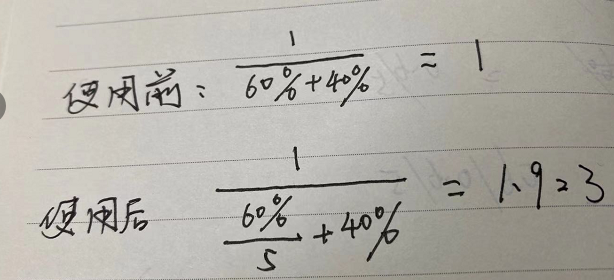 使用前: 1/(60%+40%) = 1
使用后 1/(60%/5+40%) = 1.923